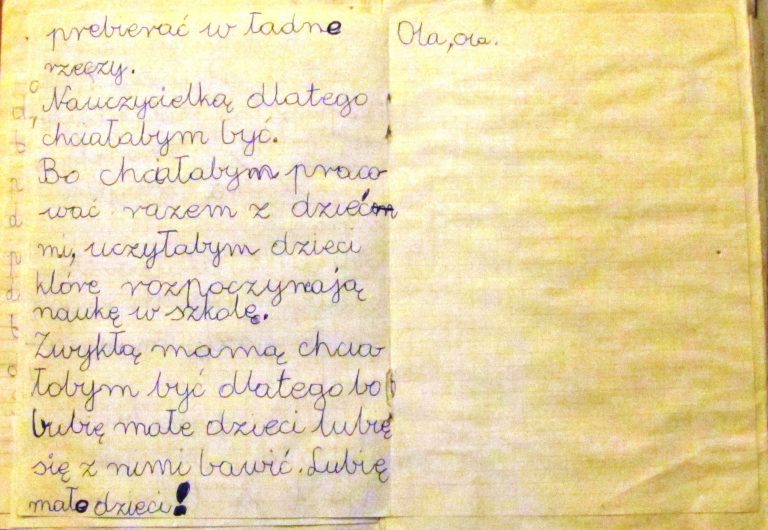 prebierać w ładne
rzęczy.
Nauczycielką dlatego
chciałabym być.
Bo chciałabym praco
wać razem z dzieć
mi, uczyłabym dzieci
które rozpoczynają
naukę w szkolę.
Zwykłą mamą chcia
łobym być dlatego bo
lubię małe dzieci lubię
się z nimi bawić. Lubię
małe dzieci!
Ola, Ola.